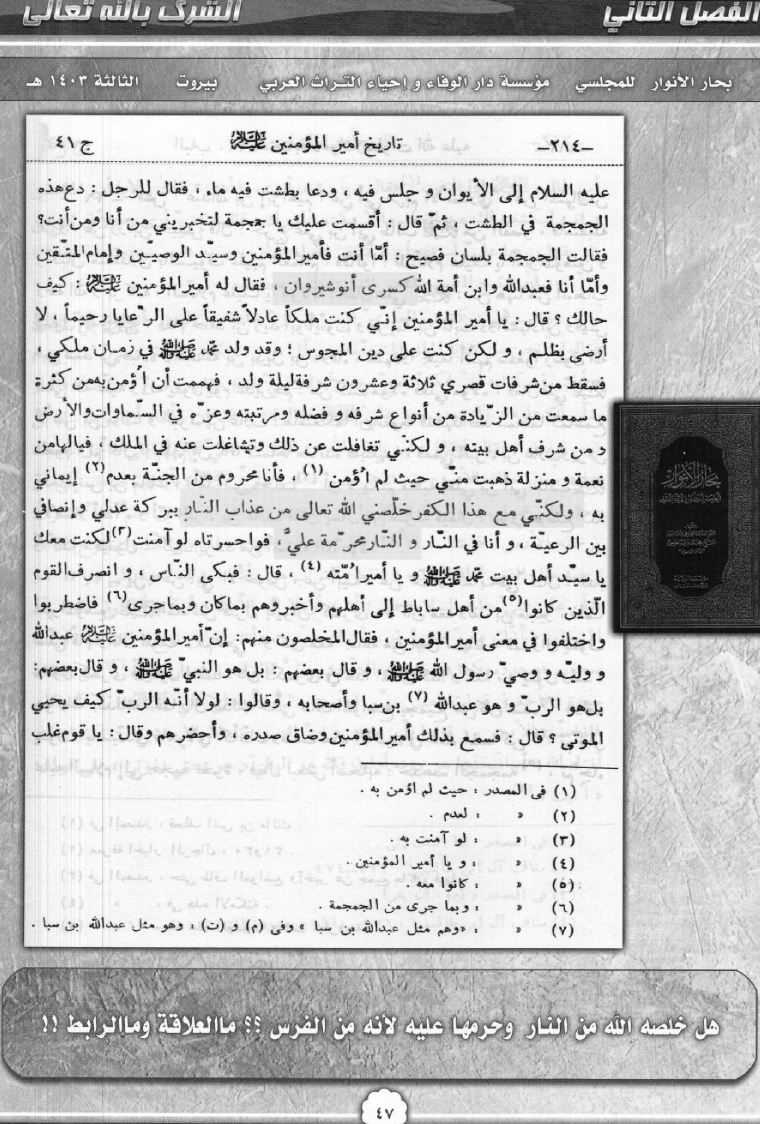 الفصل الثاني الشرك بالله تعالى
بحار الأنوار للمجلسي مؤسسة دار الوفاء و إحياء التراث العربي بيروت الثالثة ١٤٠٣ هـ
-٢١٤- تاريخ أمير المؤمنين عليه السلام ج ٤١
عليه السلام إلى الأيوان و جلس فيه ، ودعا بطشت فيه ماء ، فقال للرجل : دع هذه
الجمجمة في الطشت ، ثمّ قال : أقسمت عليك يا جمجمة لتخبريني من أنا ومن أنت؟
فقالت الجمجمة بلسان فصيح : أمّا أنت فأمير المؤمنين وسيّد الوصيّين وإمام المتّقين
وأمّا أنا فعبدالله وابن أمة الله كسرى أنوشيروان ، فقال له أمير المؤمنين عليه السلام : كيف
حالك ؟ قال : يا أمير المؤمنين إنّي كنت ملكاً عادلاً شفيقاً على الرّعايا رحيماً ، لا
أرضى بظلم ، و لكن كنت على دين المجوس ؛ وقد ولد محمّد صلى الله عليه وآله في زمان ملكي ،
فسقط من شرفات قصري ثلاثة وعشرون شرفة ليلة ولد ، فهممت أن اُؤمن به من كثرة
ما سمعت من الزّيادة من أنواع شرفه و فضله ومرتبته وعزّه في السّماوات والأرض
و من شرف أهل بيته ، و لكنّي تغافلت عن ذلك وتشاغلت عنه في الملك ، فيالها من
نعمة و منزلة ذهبت منّي حيث لم اُؤمن (١) ، فأنا محروم من الجنّة بعدم (٢) إيماني
به ، ولكنّي مع هذا الكفر خلّصني الله تعالى من عذاب النّار ببركة عدلي وإنصافي
بين الرعيّة ، و أنا في النّار و النّار محرّمة عليّ ، فواحسرتاه لو آمنت (٣) لكنت معك
يا سيّد أهل بيت محمّد صلى الله عليه وآله و يا أمير اُمّته (٤) ، قال : فبكى النّاس ، و انصرف القوم
الّذين كانوا (٥) من أهل ساباط إلى أهلهم وأخبروهم بما كان وبما جرى (٦) فاضطربوا
واختلفوا في معنى أمير المؤمنين ، فقال المخلصون منهم : إنّ أمير المؤمنين عليه السلام عبدالله
و وليّه و وصيّ رسول الله صلى الله عليه وآله ، و قال بعضهم : بل هو النبيّ صلى الله عليه وآله ، و قال بعضهم :
بل هو الربّ و هو عبدالله (٧) بن سبا وأصحابه ، وقالوا : لولا أنّه الربّ كيف يحيي
الموتى ؟ قال : فسمع بذلك أمير المؤمنين وضاق صدره ، وأحضرهم وقال : يا قوم غلب
(١) في المصدر : حيث لم اؤمن به .
(٢) » » : لعدم .
(٣) » » : لو آمنت به .
(٤) » » : و يا أمير المؤمنين .
(٥) » » : كانوا معه .
(٦) » » : وبما جرى من الجمجمة .
(٧) » » : «وهم مثل عبدالله بن سبا » وفى (م) و (ت) : وهو مثل عبدالله بن سبا .
بحار الأنوار
هل خلصه الله من النار وحرمها عليه لأنه من الفرس ؟؟ ماالعلاقة وماالرابط !!
٤٧